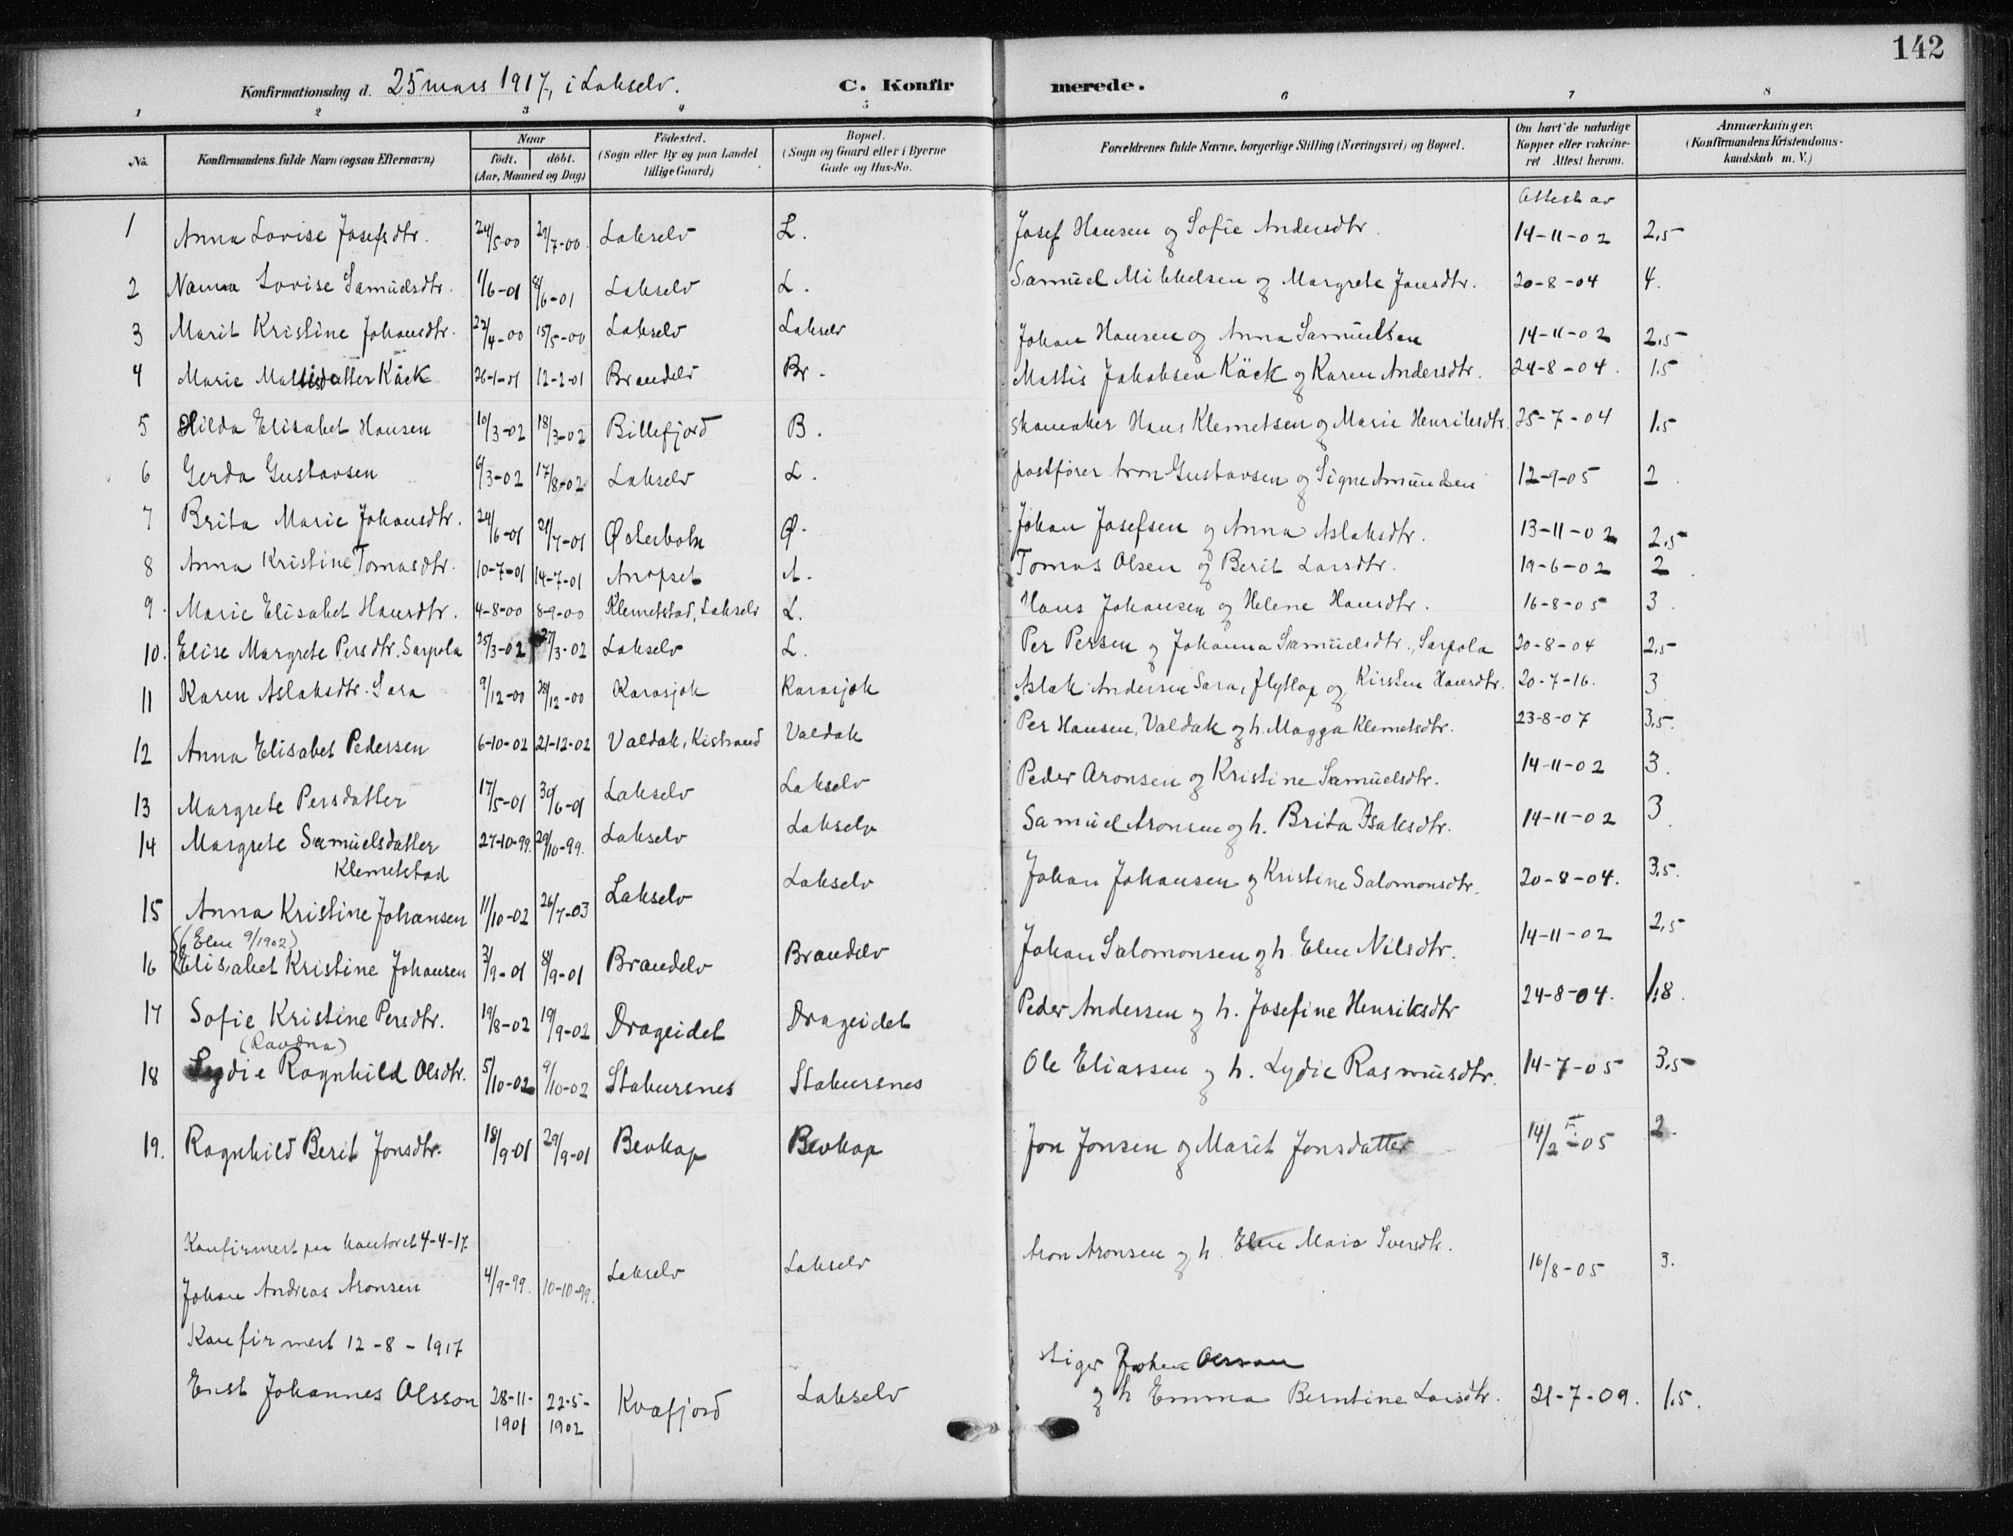 142
Konfirmationsdag d. 25 mars 1917, i Lakselv.
C. Konfirmerede.
1 2 3 4 5 6 7 8
No. Konfirmandens fulde Navn (ogsaa Efternavn) Naar født. døbt. (Aar, Maaned og Dag) Fødested. (Sogn eller By og paa Landet tillige Gaard) Bopæl. (Sogn og Gaard eller i Byerne Gade og Hus-No. Forældrenes fulde Navne, borgerlige Stilling (Næringsvei) og Bopæl. Om havt de naturlige Kopper eller vakcineret Attest herom. Anmærkninger. (Konfirmandens Kristendomskundskab m. V.)
Attest av
1 Anna Lovise Josefsdtr. 24/5-00 29/7-00. Lakselv L. Josef Hansen og Sofie Andersdtr. 14-11-02 2,5
2 Nanna Lovise Samuelsdtr. 1/6-01 8/6-01 Lakselv L. Samuel Mikkelsen og Margrete Jansdtr. 20-8-04 4.
3 Marit Kristine Johansdtr. 22/4-00 15/5-00 Lakselv Lakselv Johan Hansen og Anna Samuelsen 14-11-02 2,5
4 Marie Mattisdatter Käck 26-1-01 12-2-01 Brandelv Br. Mattis Jakobsen Käck og Karen Andersdtr. 24-8-04. 1,5
5 Hilda Elisabet Hansen 10/3-02 18/3-02 Billefjord B. skomaker Hans Klemetsen og Marie Henriksdtr. 25-7-04 1,5
6 Gerda Gustavsen 6/3-02 17/8-02 Lakselv L. postfører Aron Gustavsen og Signe Amundsen 12-9-05 2.
7 Brita Marie Johansdtr. 24/6-01 21/7-01 Østerbotn Ø. Johan Josefsen og Anna Aslaksdtr. 13-11-02 2,5
8 Anna Kristine Tomasdtr. 10-7-01 14-7-01 Anopset A. Tomas Olsen og Berit Larsdtr. 19-6-02 2.
9. Marie Elisabet Hansdtr. 4-8-00 8-9-00 Klemetstad, Lakselv L. Hans Johansen og Helene Hansdtr. 16-8-05 3.
10. Elise Margrete Persdtr. Sarpola 25/3-02 27/3-02 Lakselv L. Per Persen og Johanna Samuelsdtr., Sarpola 20-8-04 2,5
11 Karen Aslaksdtr. Sara 9/12-00 28/12-00 Karasjok Karasjok Aslak Andersen Sara, flytlap og Kirsten Hansdtr. 20-7-16. 3
12 Anna Elisabet Pedersen 6-10-02 21-12-02 Valdak, Kistrand Valdak Per Hansen, Valdak og h. Magga Klemetsdtr. 23-8-07 3,5.
13 Margrete Persdatter 17/5-01 30/6-01 Lakselv Lakselv Peder Aronsen og Kristine Samuelsdtr. 14-11-02 3.
14 Margrete Samuelsdatter 27-10-99. 29/10-99. Lakselv Lakselv Samuel Aronsen og h. Brita Isaksdtr. 14-11-02 3.
Klemetstad
15 Anna Kristine Johansen 11/10-02 26/7-03 Lakselv Lakselv Johan Johansen og Kristine Salomonsdtr. 20-8-04. 3,5.
(Elen 9/1902)
16 Elisabet Kristine Johansen 3/9-01 8/9-01 Brandelv Brandelv Johan Salomonsen og h. Elen Nilsdtr. 14-11-02 2,5
17 Sofie Kristine Persdtr. 19/8-02 19/9-02 Drageidet Drageidet Peder Andersen og h. Josefine Henriksdtr 24-8-04. 1,8.
(Ravdna)
18 Lydie Ragnhild Olsdtr. 5/10-02 9/10-02 Stabursnes Stabursnes Ole Eliassen og h. Lydie Rasmusdtr. 14-7-05 3,5
19. Ragnhild Berit Jonsdtr. 18/9-01 29/9-01 Bevkop Bevkop Jon Jonsen og Marit Jonsdatter 14/2-05 2.
Konfirmert paa kontoret 4-4-17.
Johan Andreas Aronsen 4/9-99. 10-10-99. Lakselv Lakselv Aron Aronsen og h. Elen Maia Iversdtr. 16/8-05 3.
Konfirmert 12-8-1917
stiger Johan Olsson
Enst Johannes Olsson 28-11-1901 22-5-1902 Kvæfjord Lakselv og h Emma Berntine Larsdtr. 21-7-09. 1,5.